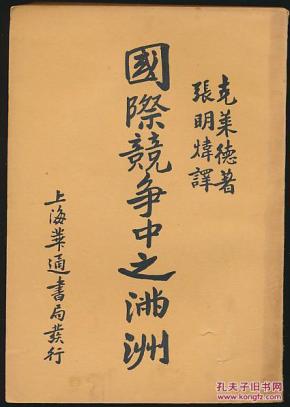 克萊德著
張明煒譯
國際競爭中之滿洲
上海華通書局發行
孔夫子旧书网
www.kongfz.com